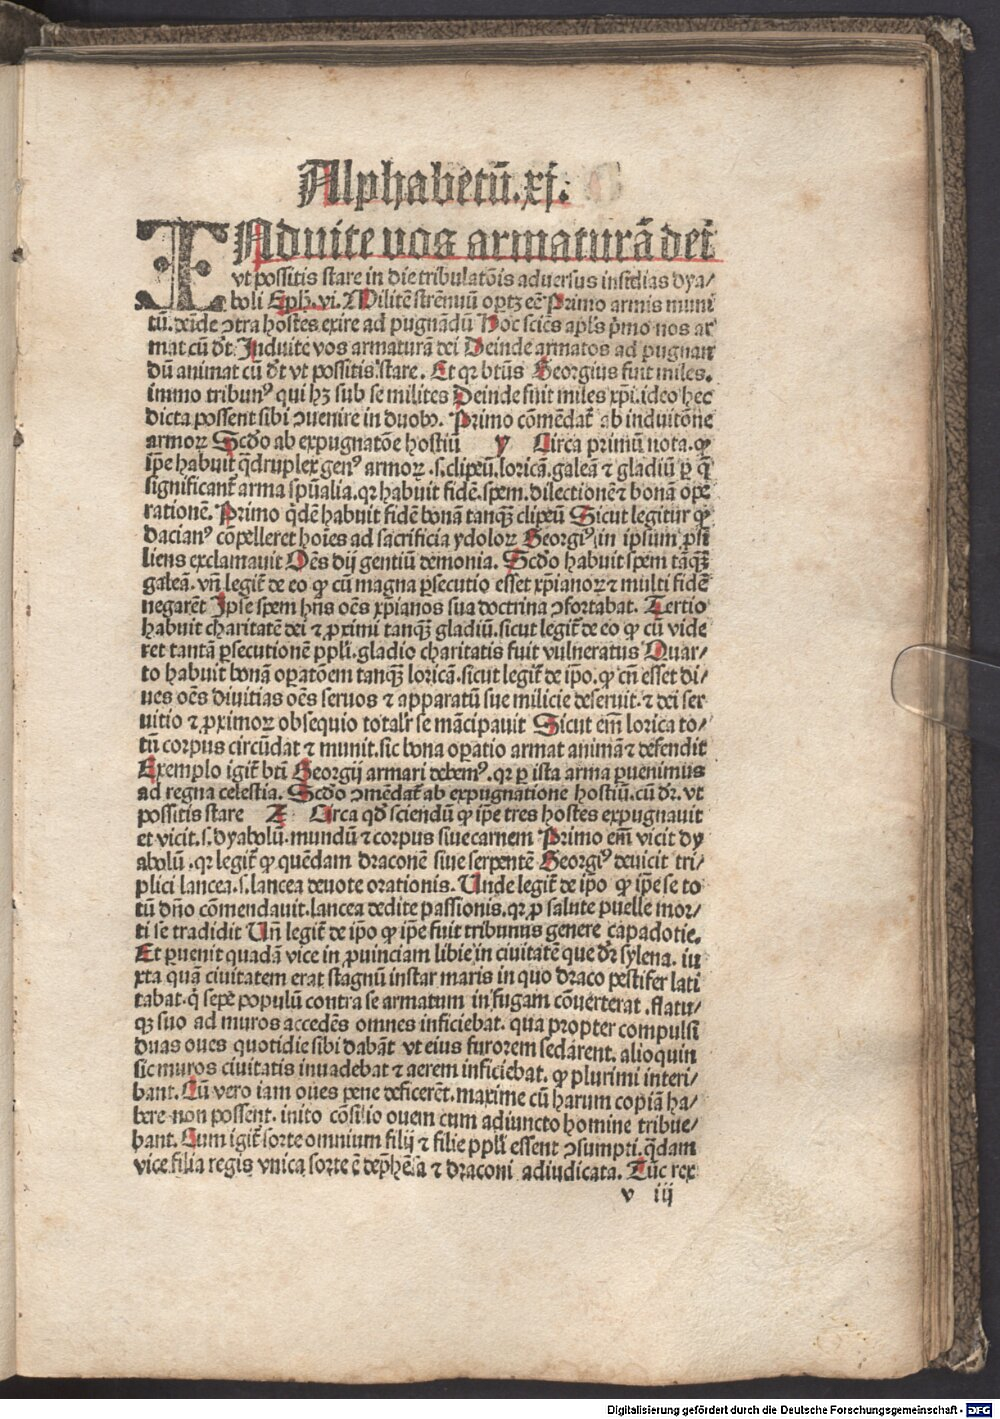 Alphabetū.xj.
INduite vos armaturā dei
vt possitis stare in die tribulatōis aduersus insidias dya/
boli Eph. vi. Militē strēnuū optꝫ eē Primo armis muni
tū. deīde ↄtra hostes exire ad pugnādū Hoc sciēs apl's p̄mo nos ar
mat cū dt̄. Induite vos armaturā dei Deinde armatos ad pugnan
dū animat cū dt̄ vt possitis stare. Et qꝛ btūs Georgius fuit miles.
immo tribunꝰ qui hꝫ sub se milites Deinde fuit miles xp̄i. ideo hec
dicta possent sibi ↄuenire in duobꝰ. Primo cōmēdat̄ ab induitōne
armoꝝ Scd̄o ab expugnatōe hostiū y Circa primū nota. ꝙ
ip̄e habuit q̄druplex genꝰ armoꝝ .s. clipeū. loricā. galeā ⁊ gladiū ꝑ q̄
significant̄ arma spūalia. qꝛ habuit fidē. spem. dilectionē ⁊ bonā ope
rationē. Primo q̄dē habuit fidē bonā tanqꝫ clipeū Sicut legitur ꝙ
dacianꝰ cōpelleret hoīes ad sacrificia ydoloꝝ Georgiꝰ in ipsum ꝓsi
liens exclamauit Oēs dij gentiū demonia. Scd̄o habuit spem tāqꝫ
galeā. vn̄ legit̄ de eo ꝙ cū magna ꝑsecutio esset xp̄ianoꝝ ⁊ multi fidē
negarēt Ipse spem hn̄s oēs xp̄ianos sua doctrina ↄfortabat. Tertio
habuit charitatē dei ⁊ ꝓximi tanqꝫ gladiū. sicut legit̄ de eo ꝙ cū vide
ret tantā ꝑsecutionē ppl̄i. gladio charitatis fuit vulneratus Quar/
to habuit bonā oꝑatōem tanqꝫ loricā. sicut legit̄ de ip̄o. ꝙ cū esset di/
ues oēs diuitias oēs seruos ⁊ apparatū sue milicie deseruit. ⁊ dei ser
uitio ⁊ ꝓximoꝝ obsequio totalr̄ se mācipauit Sicut em̄ lorica to/
tū corpus circūdat ⁊ munit. sic bona oꝑatio armat animā ⁊ defendit
Exemplo igit̄ bt̄i Georgij armari debemꝰ. qꝛ ꝑ ista arma ꝑuenimus
ad regna celestia. Scd̄o ↄmēdat̄ ab expugnatione hostiū. cū dr̄. vt
possitis stare Z Circa qd̄ sciendū ꝙ ip̄e tres hostes expugnauit
et vicit. s. dyabolū. mundū ⁊ corpus siue carnem Primo em̄ vicit dy
abolū . qꝛ legit̄ ꝙ quēdam draconē siue serpentē Georgiꝰ deuicit tri/
plici lancea. s. lancea deuote orationis. Unde legit̄ de ip̄o ꝙ ip̄e se to
tū dn̄o cōmendauit. lancea dedite passionis. qꝛ ꝓ salute puelle mor/
ti se tradidit Un̄ legit̄ de ip̄o ꝙ ip̄e fuit tribunus genere capadotie.
Et ꝑuenit quadā vice in ꝓuinciam libie in ciuitatē que dr̄ sylena. iu
xta quā ciuitatem erat stagnū instar maris in quo draco pestifer lati
tabat. q̄ sepe populū contra se armatum in fugam cōuerterat. flatu/
qꝫ suo ad muros accedēs omnes inficiebat. qua propter compulsi
duas oues quotidie sibi dabāt vt eius furorem sedarent. alioquin
sic muros ciuitatis inuadebat ⁊ aerem inficiebat. ꝙ plurimi interi/
bant. Cū vero iam oues pene deficerēt. maxime cū harum copiā ha/
bere non possent. inito cōsilio ouem cum adiuncto homine tribue/
bant. Cum igit̄ sorte omnium filij ⁊ filie ppl̄i essent ↄsumpti. q̄dam
vice filia regis vnica sorte ē dep̄hēsa ⁊ draconi adiudicata. Tūc rex
v iij
Digitalisierung gefördert durch die Deutsche Forschungsgemeinschaft - DFG